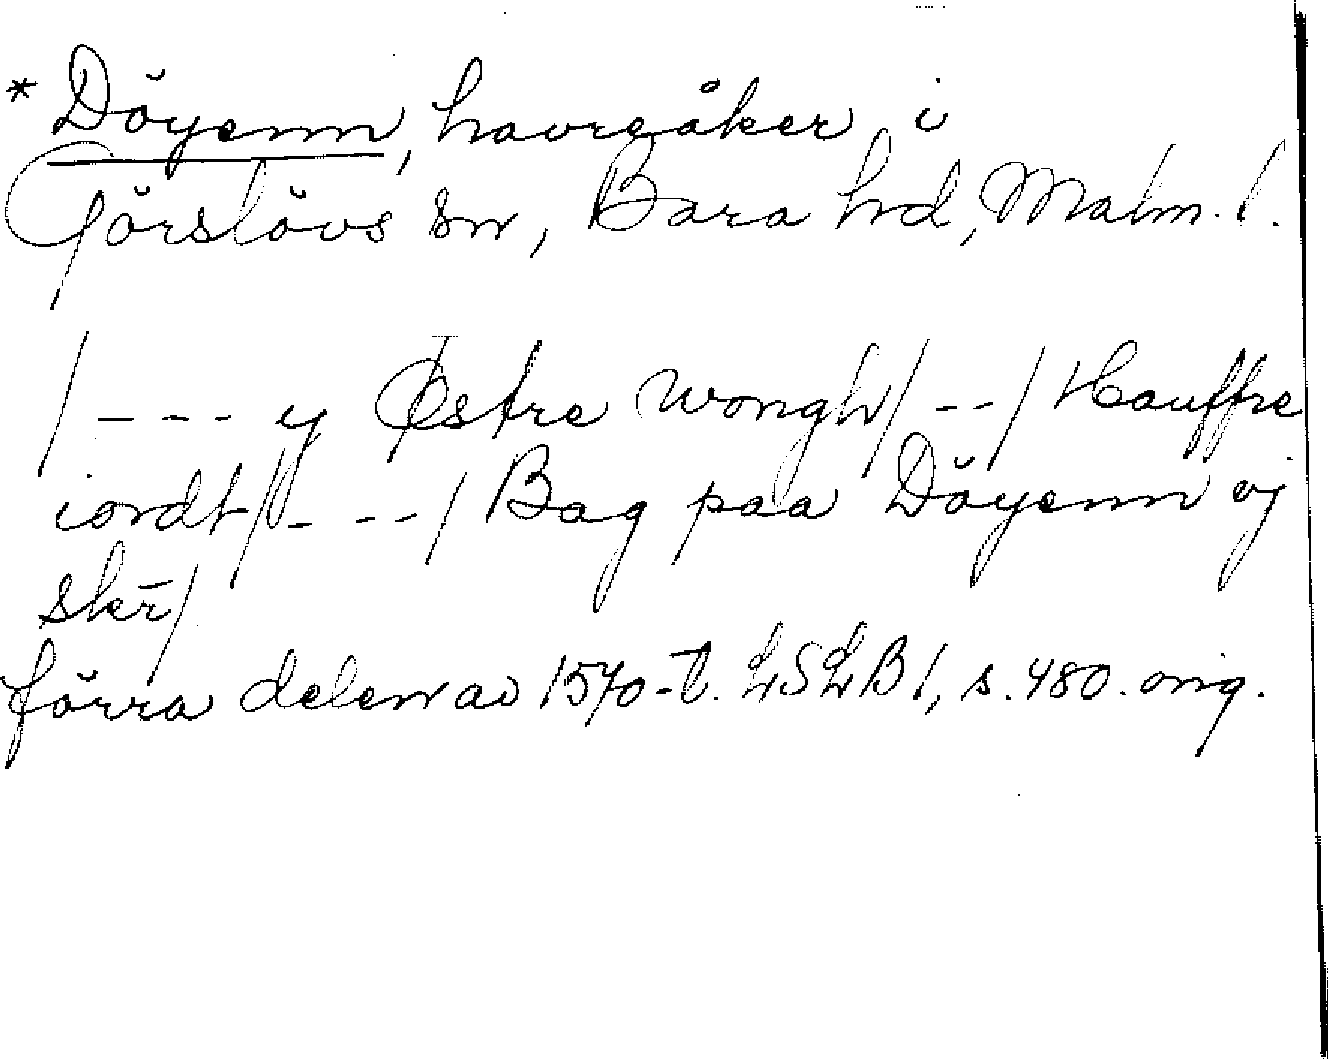 * Döyenn, havreåker i
Görslövs sn, Bara hd, Malm. l.
/ --- y Østre wongh/ -- / Hauffre
iordt/ --- / Bag paa Döyenn ij
skr̄/
förra delen av 1570-t. LSLB 1, s. 480. orig.